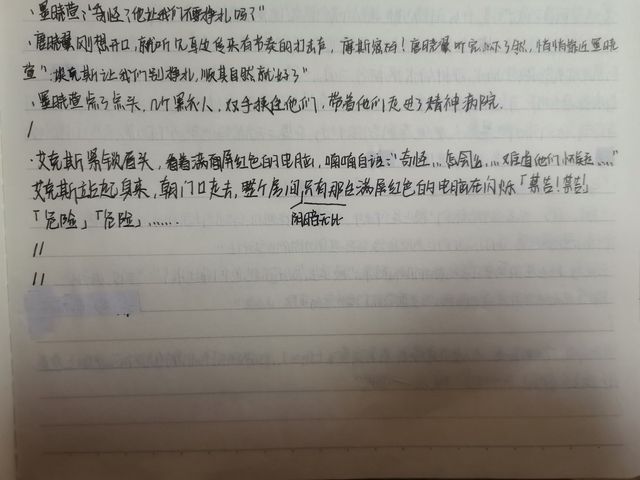 ·墨晓萱:"奇怪了他让我们不要挣扎吗?"
·唐晓翼刚想开口,就听见耳边传来有节奏的打击声,摩斯密码!唐晓翼听完心下了然,悄悄靠近墨晓
萱:"埃克斯让我们别挣扎,顺其自然就好了"
·墨晓萱点了点头,几个黑衣人,双手挟住他们,带着他们走进了精神病院.
/
·艾克斯紧锁眉头,看着满面屏红色的电脑,喃喃自语:"奇怪…怎会…难道他们…"
艾克斯站起身来,朝门口走去,整个房间只有那台满屏红色的电脑在闪烁「禁告!禁告!」
「危险」「危险」……
阴暗无比
//
//